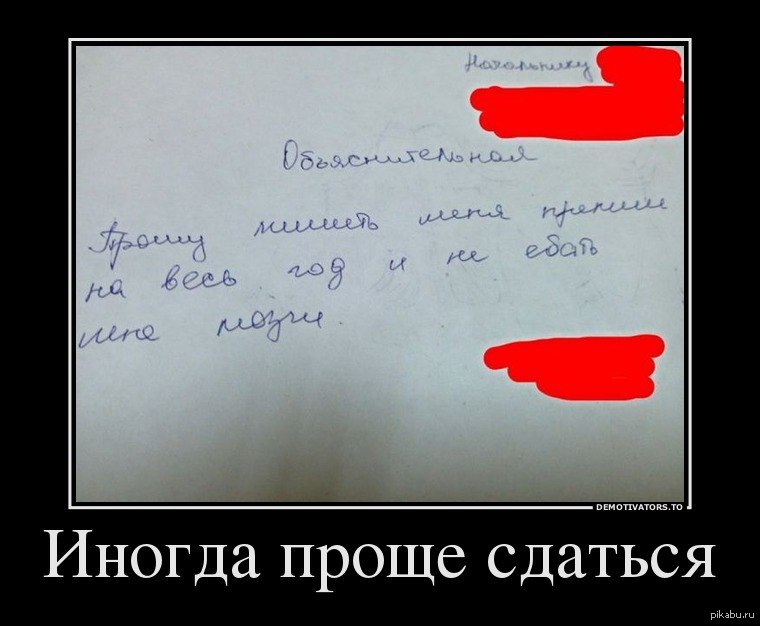 Начальнику
Объяснительная
Прошу лишить меня премии
на весь год и не ебать
мне мозги.
DEMOTIVATORS.TO
Иногда проще сдаться
pikabu.ru